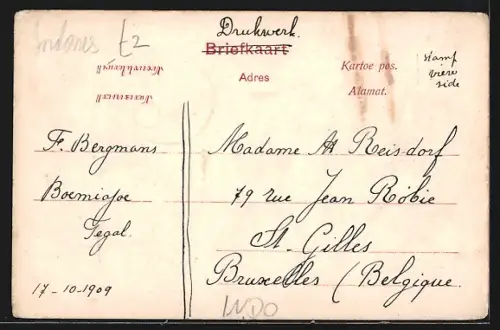 Drukwerk.
Briefkaart
Adres
Kartoe pos.
Alamat.
stamp
were
side
£2
F. Bergmans
Boemiajoe
Tegal.
17-10-1909
Madame A. Reisdorf
79 rue Jean Robie
St. Gilles
Bruxelles (Belgique.
INDO